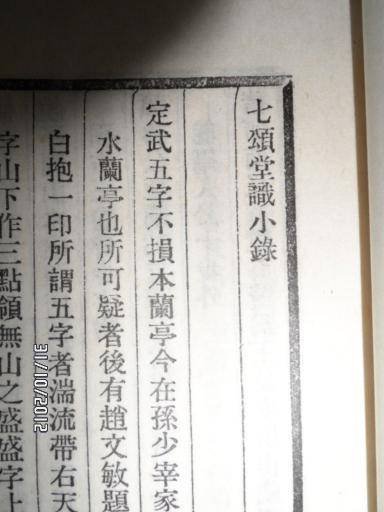 七頌堂識小錄
定武五字不損本蘭亭今在孫少宰家
水蘭亭也所可疑者後有趙文敏題
白抱一印所謂五字者湍流帶右天
字山下作三點領無山之盛盛字
31/10/2012